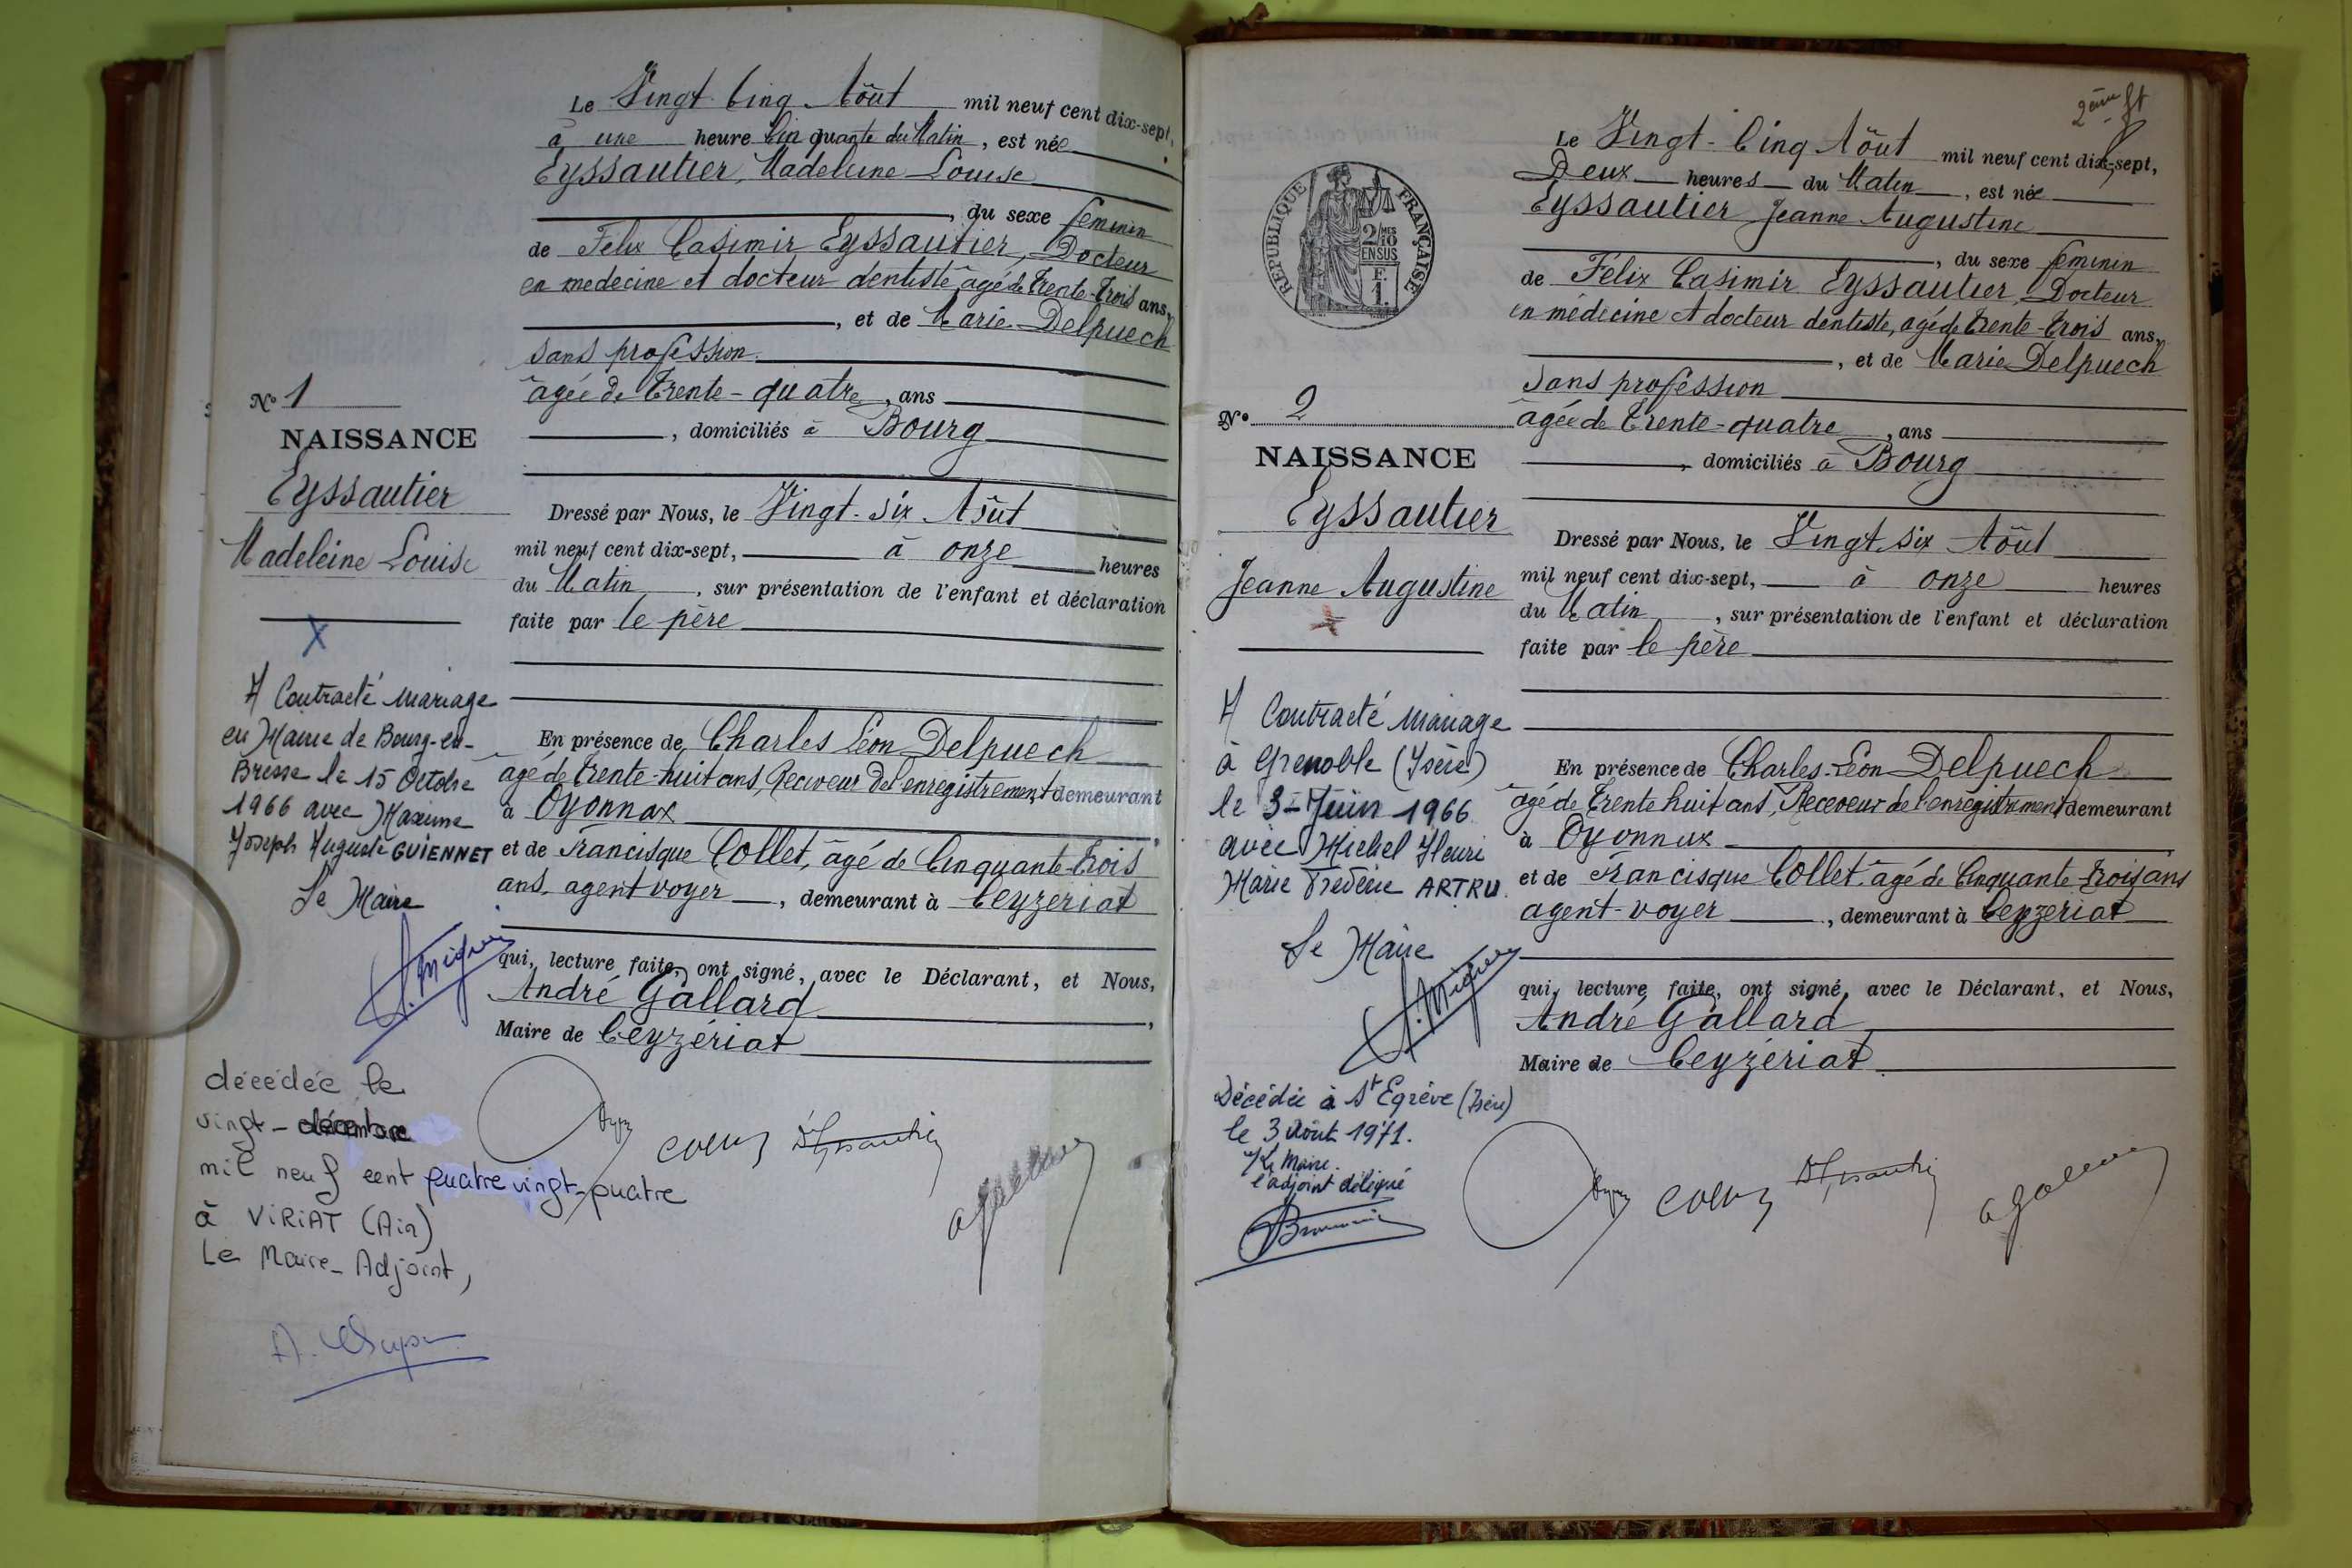 Le Vingt-Cinq Août mil neuf cent dix-sept,
à une heure Cinquante du Matin, est née
Eyssautier, Madeleine Louise
, du sexe féminin
de Félix Casimir Eyssautier, Docteur
en medecine et docteur dentiste, âgé de Trente-Trois ans,
, et de Marie Delpuech
sans profession
âgée de Trente-quatre, ans
, domiciliés à Bourg
Dressé par Nous, le Vingt-six Août
mil neuf cent dix-sept, à onze heures
du Matin, sur présentation de l'enfant et déclaration
faite par le père
En présence de Charles Léon Delpuech
âgé de Trente-huit ans, Receveur de l'enregistrement demeurant
à Oyonnax
et de Francisque Collet, âgé de Cinquante-trois
ans, agent voyer, demeurant à Ceyzeriat
qui, lecture faite, ont signé, avec le Déclarant, et Nous,
André Gallard,
Maire de Ceyzériat
Nº 1
NAISSANCE
Eyssautier
Madeleine Louise
X
A Contracté mariage
en Mairie de Bourg-en-
Bresse le 15 Octobre
1966 avec Maxime
Joseph Auguste GUIENNET
Le Maire
décédée le
vingt - décembre
mil neuf cent quatre vingt-quatre
à VIRIAT (Ain)
Le Maire-Adjoint,
2ème ft
Le Vingt-Cinq Août mil neuf cent dix-sept,
Deux heures du Matin, est née
Eyssautier Jeanne Augustine
, du sexe féminin
de Félix Casimir Eyssautier, Docteur
en médecine et docteur dentiste, âgé de Trente-Trois ans,
, et de Marie Delpuech
sans profession
âgée de Trente-quatre, ans
, domiciliés à Bourg
Dressé par Nous, le Vingt six Août
mil neuf cent dix-sept, à onze heures
du Matin, sur présentation de l'enfant et déclaration
faite par le père
En présence de Charles-Léon Delpuech
âgé de Trente huit ans, Receveur de l'enregistrement demeurant
à Oyonnax
et de Francisque Collet, âgé de Cinquante-trois ans
agent-voyer, demeurant à Ceyzeriat
qui, lecture faite, ont signé, avec le Déclarant, et Nous,
André Gallard,
Maire de Ceyzériat
RÉPUBLIQUE FRANÇAISE
2/10
EN SUS
F.
1.
Nº 2
NAISSANCE
Eyssautier
Jeanne Augustine
A Contracté mariage
à Grenoble (Isère)
le 3 Juin 1966
avec Michel Henri
Marie Frédéric ARTRU.
Le Maire
Décédée à St Egrève (Isère)
le 3 Août 1971.
Le Maire.
l'adjoint délégué